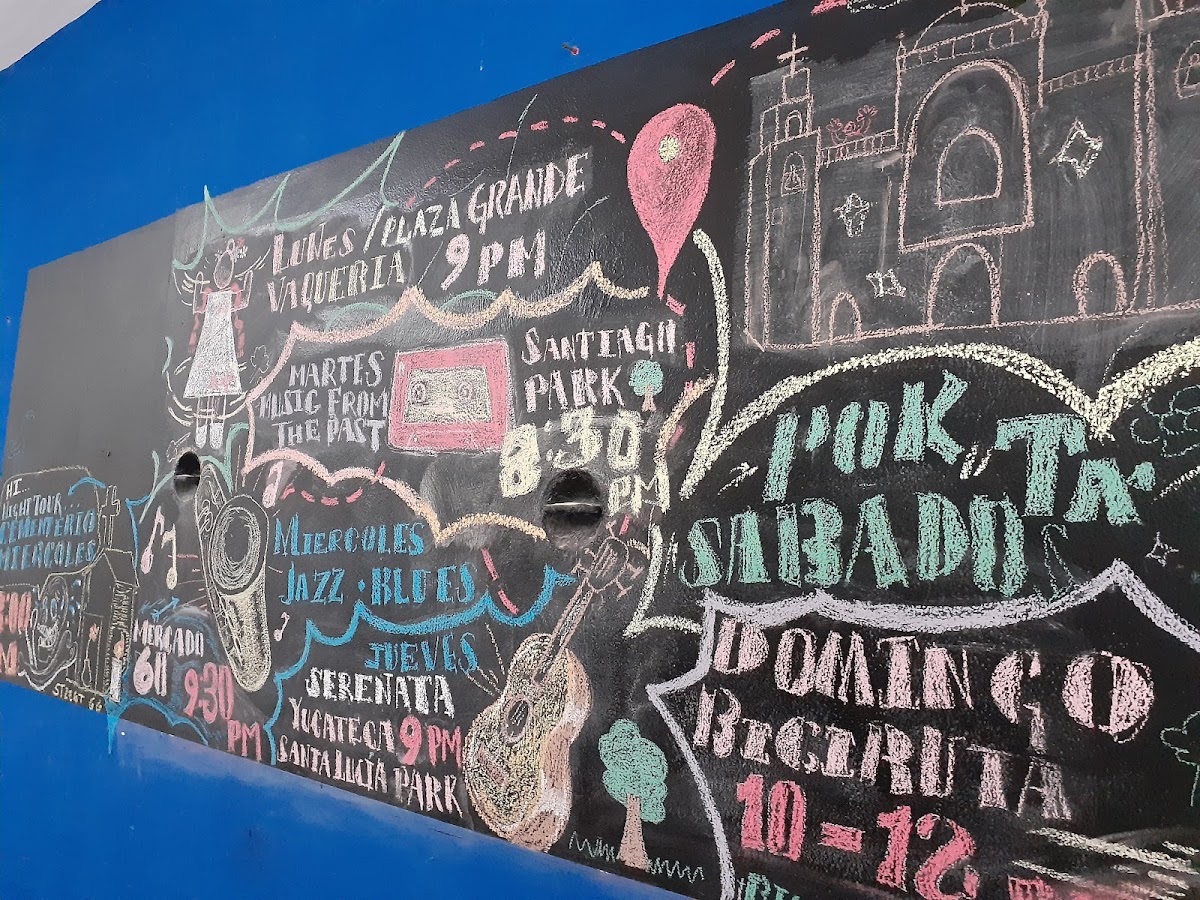 LUNES / PLAZA GRANDE
VAQUERIA 9 PM
MARTES
MUSIC FROM
THE PAST
SANTIAGO
PARK
8:30
PM
NIGHT TOUR
CEMENTERIO
MIERCOLES
STREET 66
MIERCOLES
JAZZ · BLUES
MERCADO
60
9:30
PM
JUEVES
SERENATA
YUCATECA 9 PM
SANTA LUCIA PARK
POK, TA
SABADOS
DOMINGO
BICIRUTA
10-12